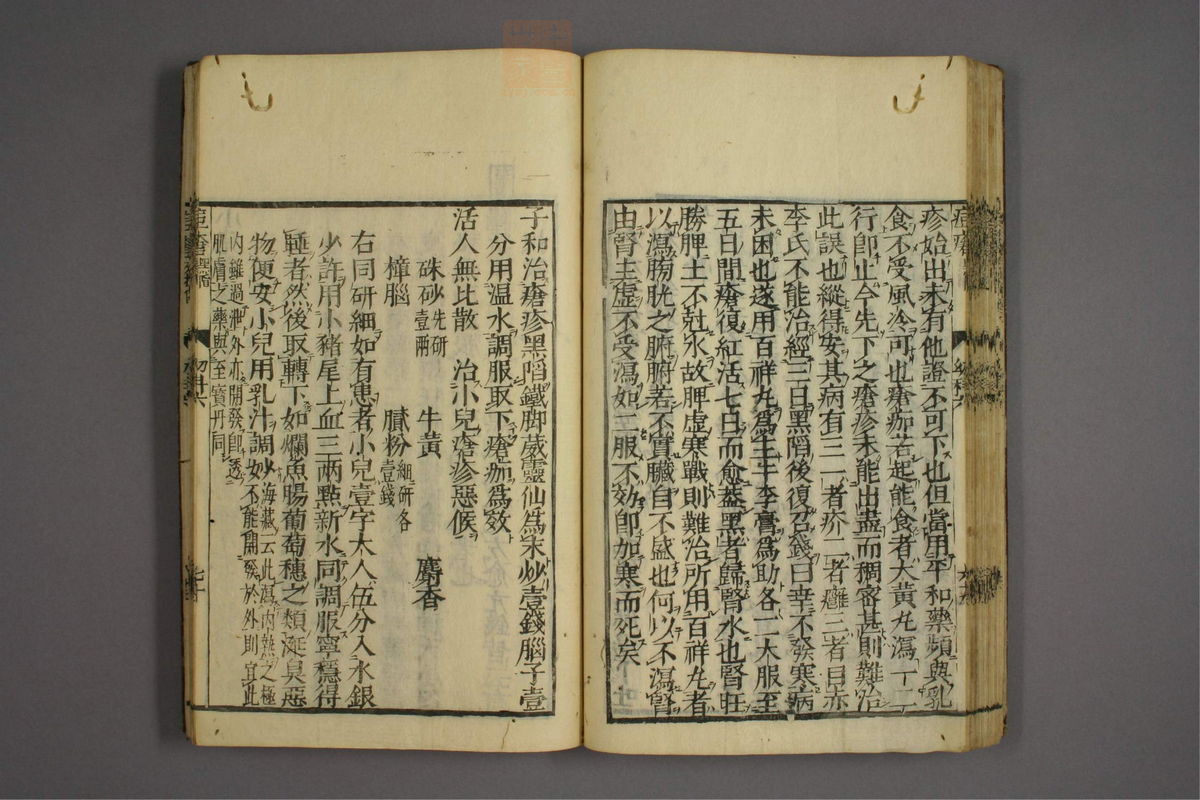 疹始出未有他證不可下也但當用平和藥頻與乳
食不受風冷可也瘡痂若起能食者大黃丸瀉一二
行即止今先下之瘡疹未能出盡而稠密甚則難治
此誤也縱得安其病有三一者疥二者癰三者目赤
李氏不能治經三日黑陷後復召錢曰幸不發寒病
未困也遂用百祥丸為主牛李膏為助各一大服至
五日間瘡復紅活七日而愈蓋黑者歸腎水也腎旺
勝脾土不尅水故脾虛寒戰則難治所用百祥丸者
以瀉膀胱之腑腑若不實臟自不盛也何以不瀉腎
由腎主虛不受瀉如二服不効即加寒而死矣
子和治瘡疹黑陷鐵脚葳靈仙為末炒壹錢腦子壹
分用温水調服取下瘡痂為效
活人無比散 治小兒瘡疹惡候
硃砂先研壹兩 牛黃 麝香
樟腦 膩粉細研各壹錢
右同研細如有患者小兒壹字大人伍分入水銀
少許用小豬尾上血三兩點新水同調服寧穩得
睡者然後取轉下如爛魚腸葡萄穗之類涎臭惡
物便安小兒用乳汁調妙海藏云此瀉內熱之極不能開發於外則宜此
內雖過泄外亦開發即透肌膚之藥與至寶丹同